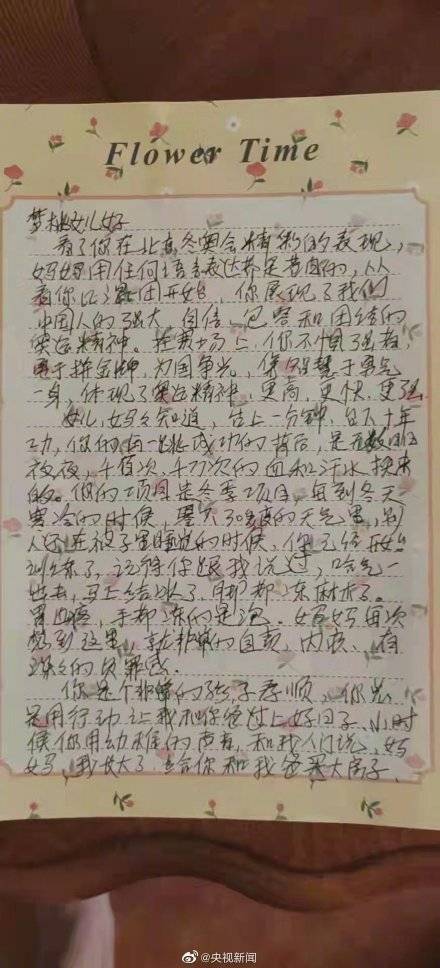 Flower Time
梦桃女儿好
看了你在北京冬奥会精彩的表现,
妈妈用任何语言表达都是苍白的,从
看你口混团开始,你展现了我们
中国人的强大、自信、包容和团结的
奥运精神。在赛场上,你不惧强者,
勇于拼金牌,为国争光,集智慧于勇气
一身,体现了奥运精神,更高,更快,更强
女儿,妈妈知道,台上一分钟,台下十年
功,你的每一次成功的背后,是无数日日
夜夜,千百次,千万次的血和汗水换来
的。你的项目是冬季项目,每到冬天
寒冷的时候,零下30度的天气里,别
人还在被子里睡觉的时候,你已经开始
训练了,记得你跟我说过,哈气一
出去,马上结冰了,脚都冻麻木了。
胃也疼,手都冻的是泡。妈妈每次
想到这里,就非常的自责,内疚,有
深深的负罪感。
你是个非常的孩子孝顺,你总
是用行动让我和你爸过上好日子,小时
候你用幼稚的声音,和我们说,妈
妈,我长大了,给你和我爸买大房子,
@央视新闻